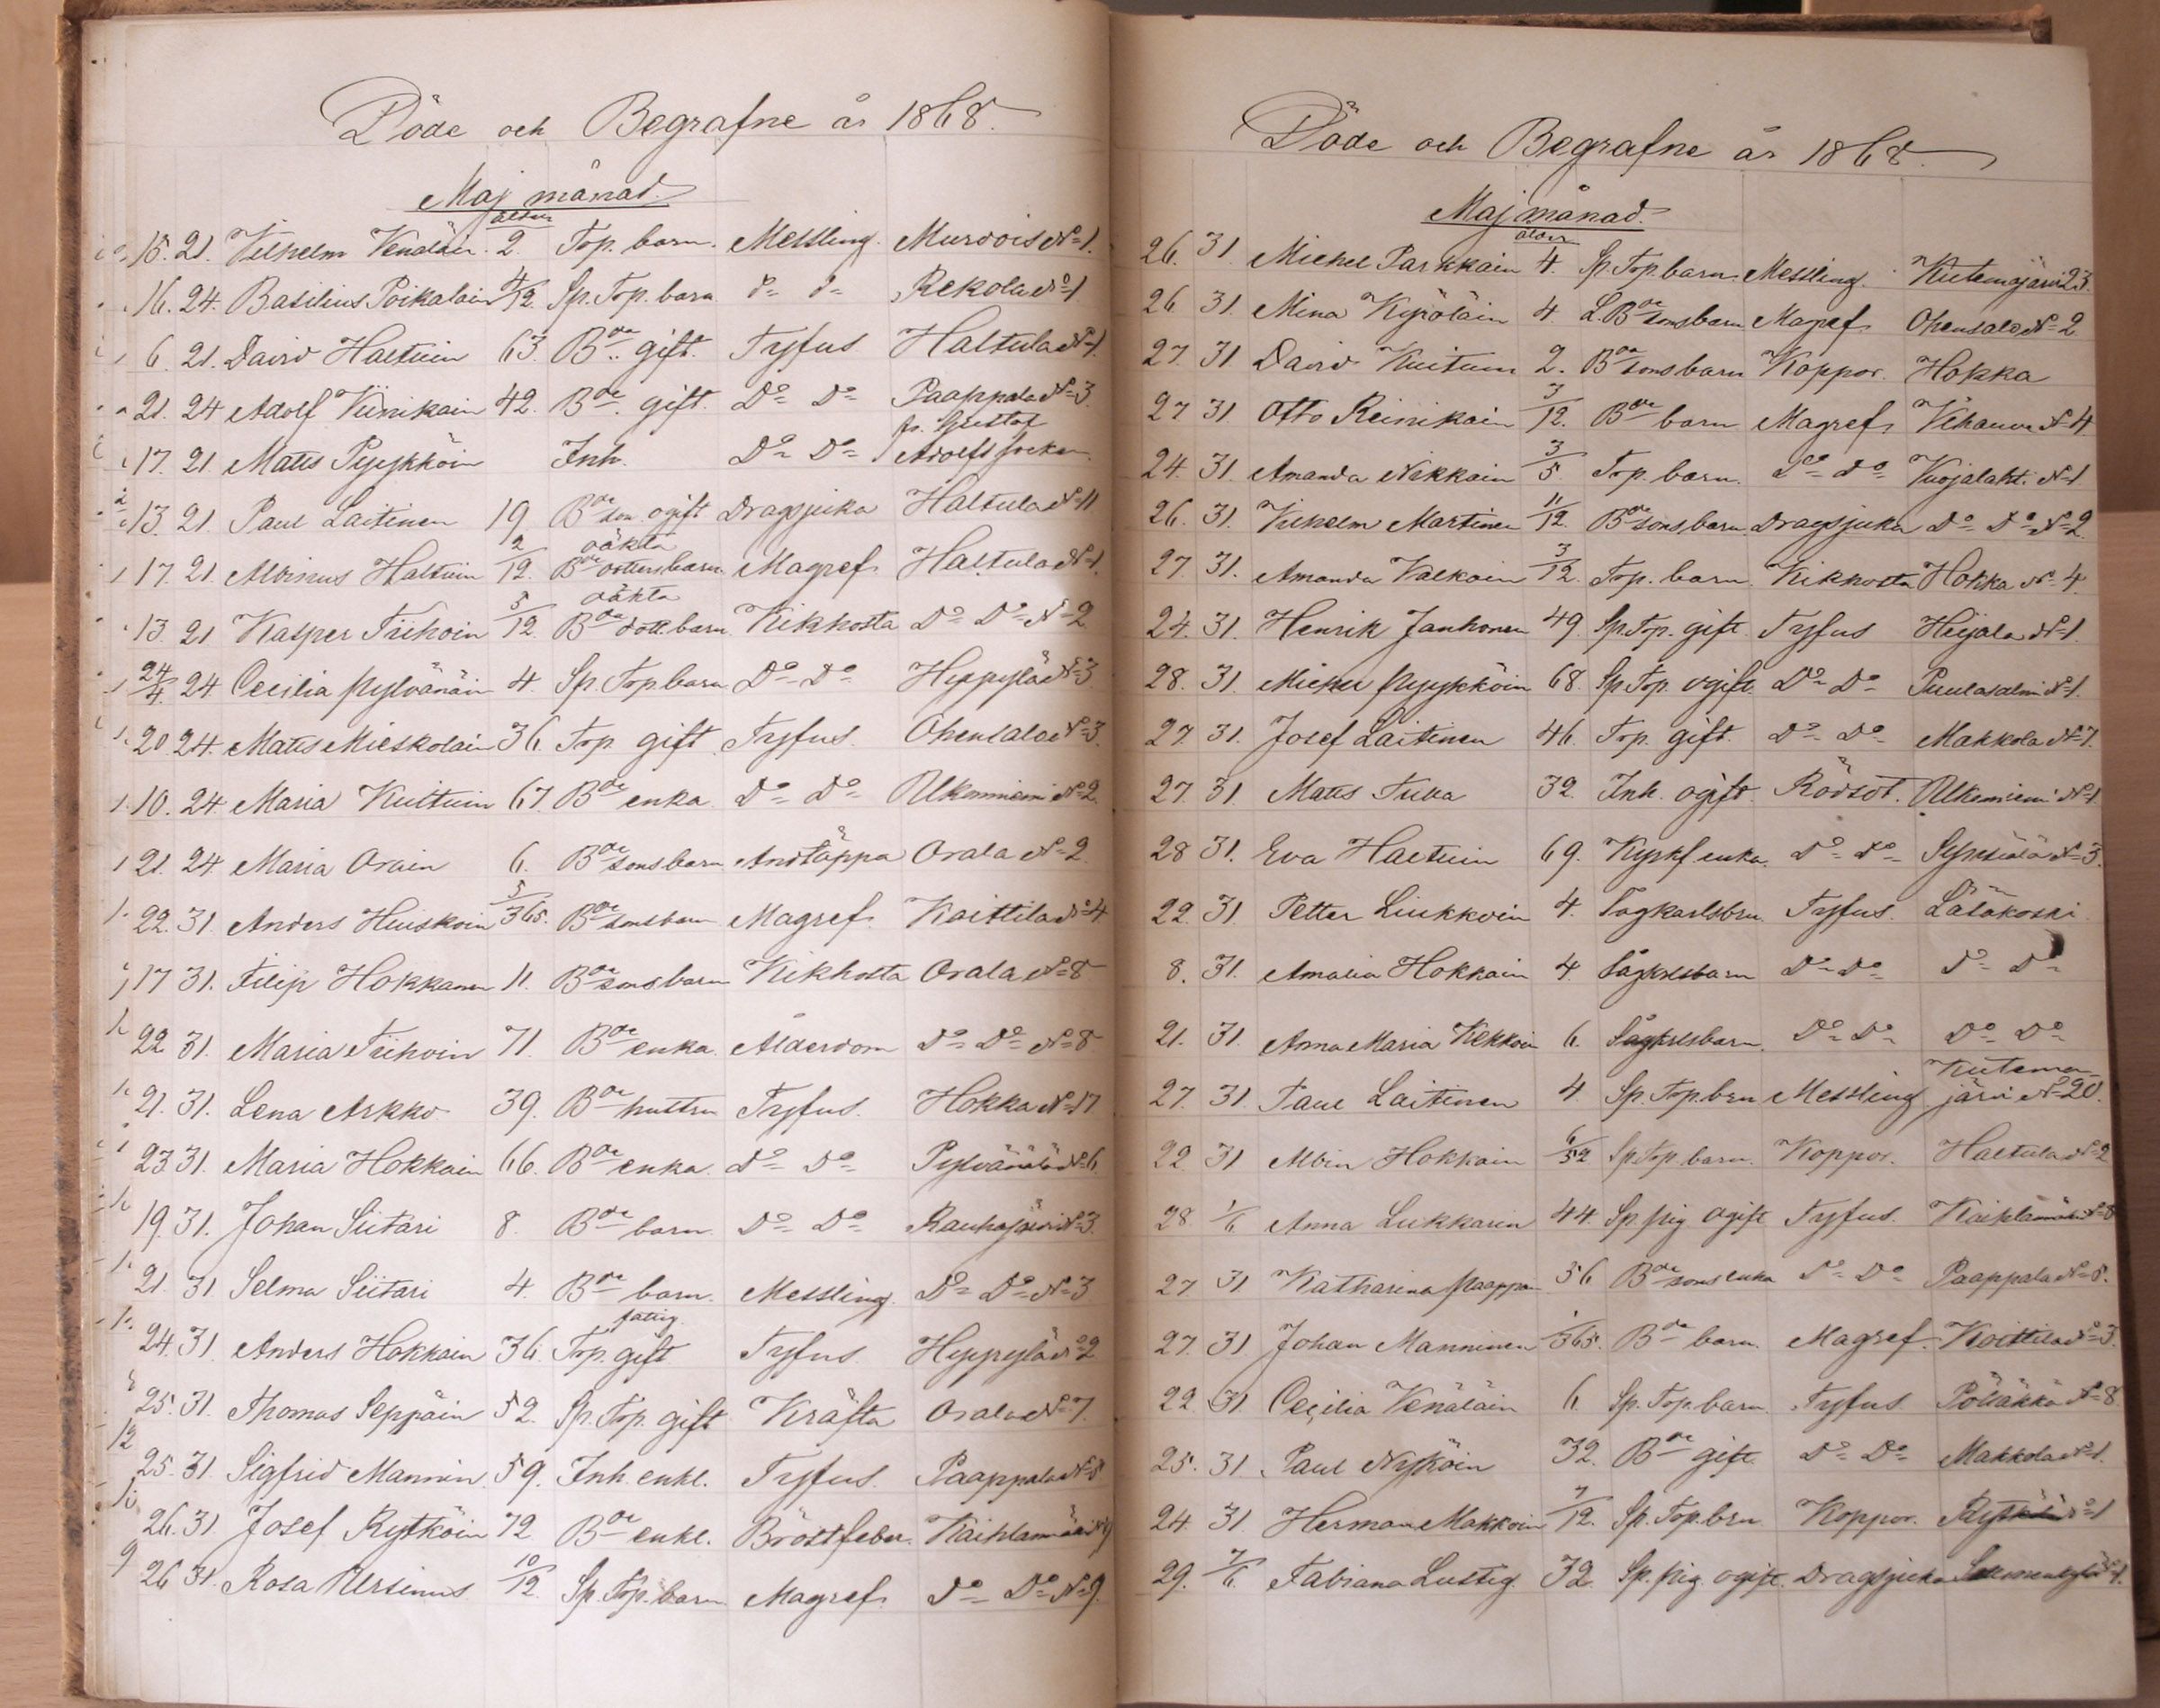 Döde och Begrafne år 1868.
Maj månad.
ålder
15. 21. Vilhelm Venäläin. 2. Torp. barn. Messling. Murdois No 1.
16. 24. Basilius Poikalain 4/12. Sp. Torp. barn do do Rekola No 1
6. 21. David Haltuin 63. Bde. gift. Tyfus Haltula No 1.
21. 24 Adolf Viinikain 42. Bde. gift. Do Do Paappala No 3.
fr. Gustaf
17. 21 Mats Pyykköin Inh. Do Do Adolfs socken
13. 21. Paul Laitinen 19 Bde son ogift Dragsjuka Haltula No 11
oäkta
17. 21. Albinus Haltuin 2/12. Bde dotters barn Magref. Haltula No 1.
oäkta
13. 21 Kasper Tiihoin 5/12. Bde dott. barn. Kikhosta Do Do No 2
24/4. 24 Cecilia Pylvänäin 4. Sp. Torp barn Do Do Heppylä No 3
20. 24. Mats Mieskolain 36. Torp. gift Tyfus. Ohensalo No 3.
10. 24. Maria Kuituin 67. Bde enka. Do Do Ulkonniemi No 2.
21. 24 Maria Orain 6. Bde sons barn Andtäppa Orala No 2
22. 31. Anders Huiskoin 5/365. Bde sonsbarn Magref. Koittila No 4
17 31. Filip Hokkanen 11. Bde sons barn Kikhosta Orala No 8
22 31. Maria Tiihoin 71. Bde enka. Ålderdom Do Do No 8
21. 31. Lena Arkko 39. Bde hustru Tyfus. Hokka No 17
23 31. Maria Hokkain 66. Bde enka. Do Do Pylvänälä No 6.
19. 31. Johan Siitari 8. Bde barn. Do Do Rauhajärvi No 3.
21. 31 Selma Siitari 4. Bde barn. Messling. Do Do No 3
fattig.
24. 31 Anders Hokkain 36. Torp. gift Tyfus. Heppylä No 2
25. 31. Thomas Seppäin 52. Sp. Torp. gift Kräfta Orala No 7.
25. 31 Sigfrid Mannin 59. Inh. enkl. Tyfus. Paappala No 5
26. 31 Josef Rytköin 72 Bde enkl. Bröstfeber. Kaihlamäki No 9
26 31. Rosa Ursinus 10/12. Sp. Torp. barn Magref. Do Do No 9.
Döde och Begrafne år 1868.
Maj månad.
ålder
26. 31. Michel Parkkain 4. Sp. Torp. barn. Messling. Kutemajärvi 23.
26 31. Mina Kyröläin 4 L. Bde sonsbarn Magref. Ohensalo No 2
27. 31 David Kuituin 2. Bde sons barn Koppor. Hokka
27 31. Otto Reinikain 3/12. Bde barn Magref. Vihavuo No 4
24. 31. Amanda Nikkain 3/5. Torp. barn. Do do Vuojalaht. No 1
26. 31. Vilhelm Martinen 11/12. Bde sons barn. Dragsjuka Do Do No 2
27. 31. Amanda Valkain 3/12. Torp. barn. Kikhosta Hokka No 4.
24. 31. Henrik Janhonen 49. Sp. Torp. gift. Tyfus Heijala No 1.
28. 31. Michel Pyykköin 68. Sp Torp. ogift. Do Do Puulasalmi No 1.
27. 31. Josef Laitinen 46. Torp. gift. Do Do Makkola No 7.
27. 31. Mats Tuua 32. Inh. ogift. Rödsot. Ulkoniemi No 1
28 31. Eva Haltuin 69. Kyrkf enka. Do Do Synsiälä No 3.
22. 31. Petter Liukkoin 4. Sågkarlsbrn. Tyfus. Läsäkoski
8. 31. Amalia Hokkain 4. Sågkrlsbarn Do Do Do Do
21. 31. Anna Maria Kekkoin 6. Sågkrlsbarn. Do Do Do Do
Kutema-
27. 31. Paul Laitinen 4 Sp. Torp. brn Messling järvi No 20.
22 31 Albin Hokkain 6/52 Sp. Torp barn. Koppor. Haltula No 2
28. 1/6. Anna Lukkarin 44. Sp. pig ogift Tyfus. Kaihlamäki No 8
27 31 Katharina Paappan 56 Bde sons enka Do Do Paappala No 5.
27. 31 Johan Manninen 1/365. Bde barn. Magref. Koittila No 3.
22. 31 Cecilia Venäläin 6. Sp. Torp. barn. Tyfus Pöllökkä No 8
25. 31 Paul Nyköin 32. Bde gift. Do Do Makkola No 1.
24. 31. Herman Makkoin 7/12. Sp. Torp. brn Koppor. Rytkölä No 1
29. 7/6. Fabiana Lustig. 32 Sp. pig. ogift. Dragsjuka